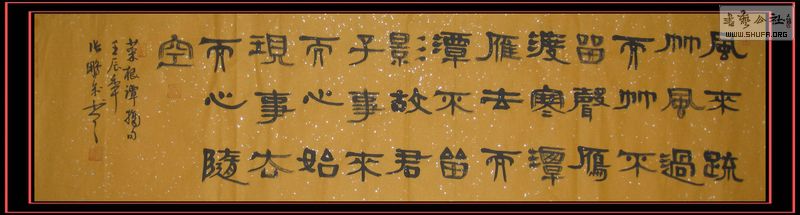 風來疏
竹風過
而竹不
留聲鴈
渡寒潭
雁去而
潭不留
影故君
子事來
而心始
現事去
而心隨
空
菜根譚摘句
壬辰年
書
書藝公社
WWW.SHUFA.ORG